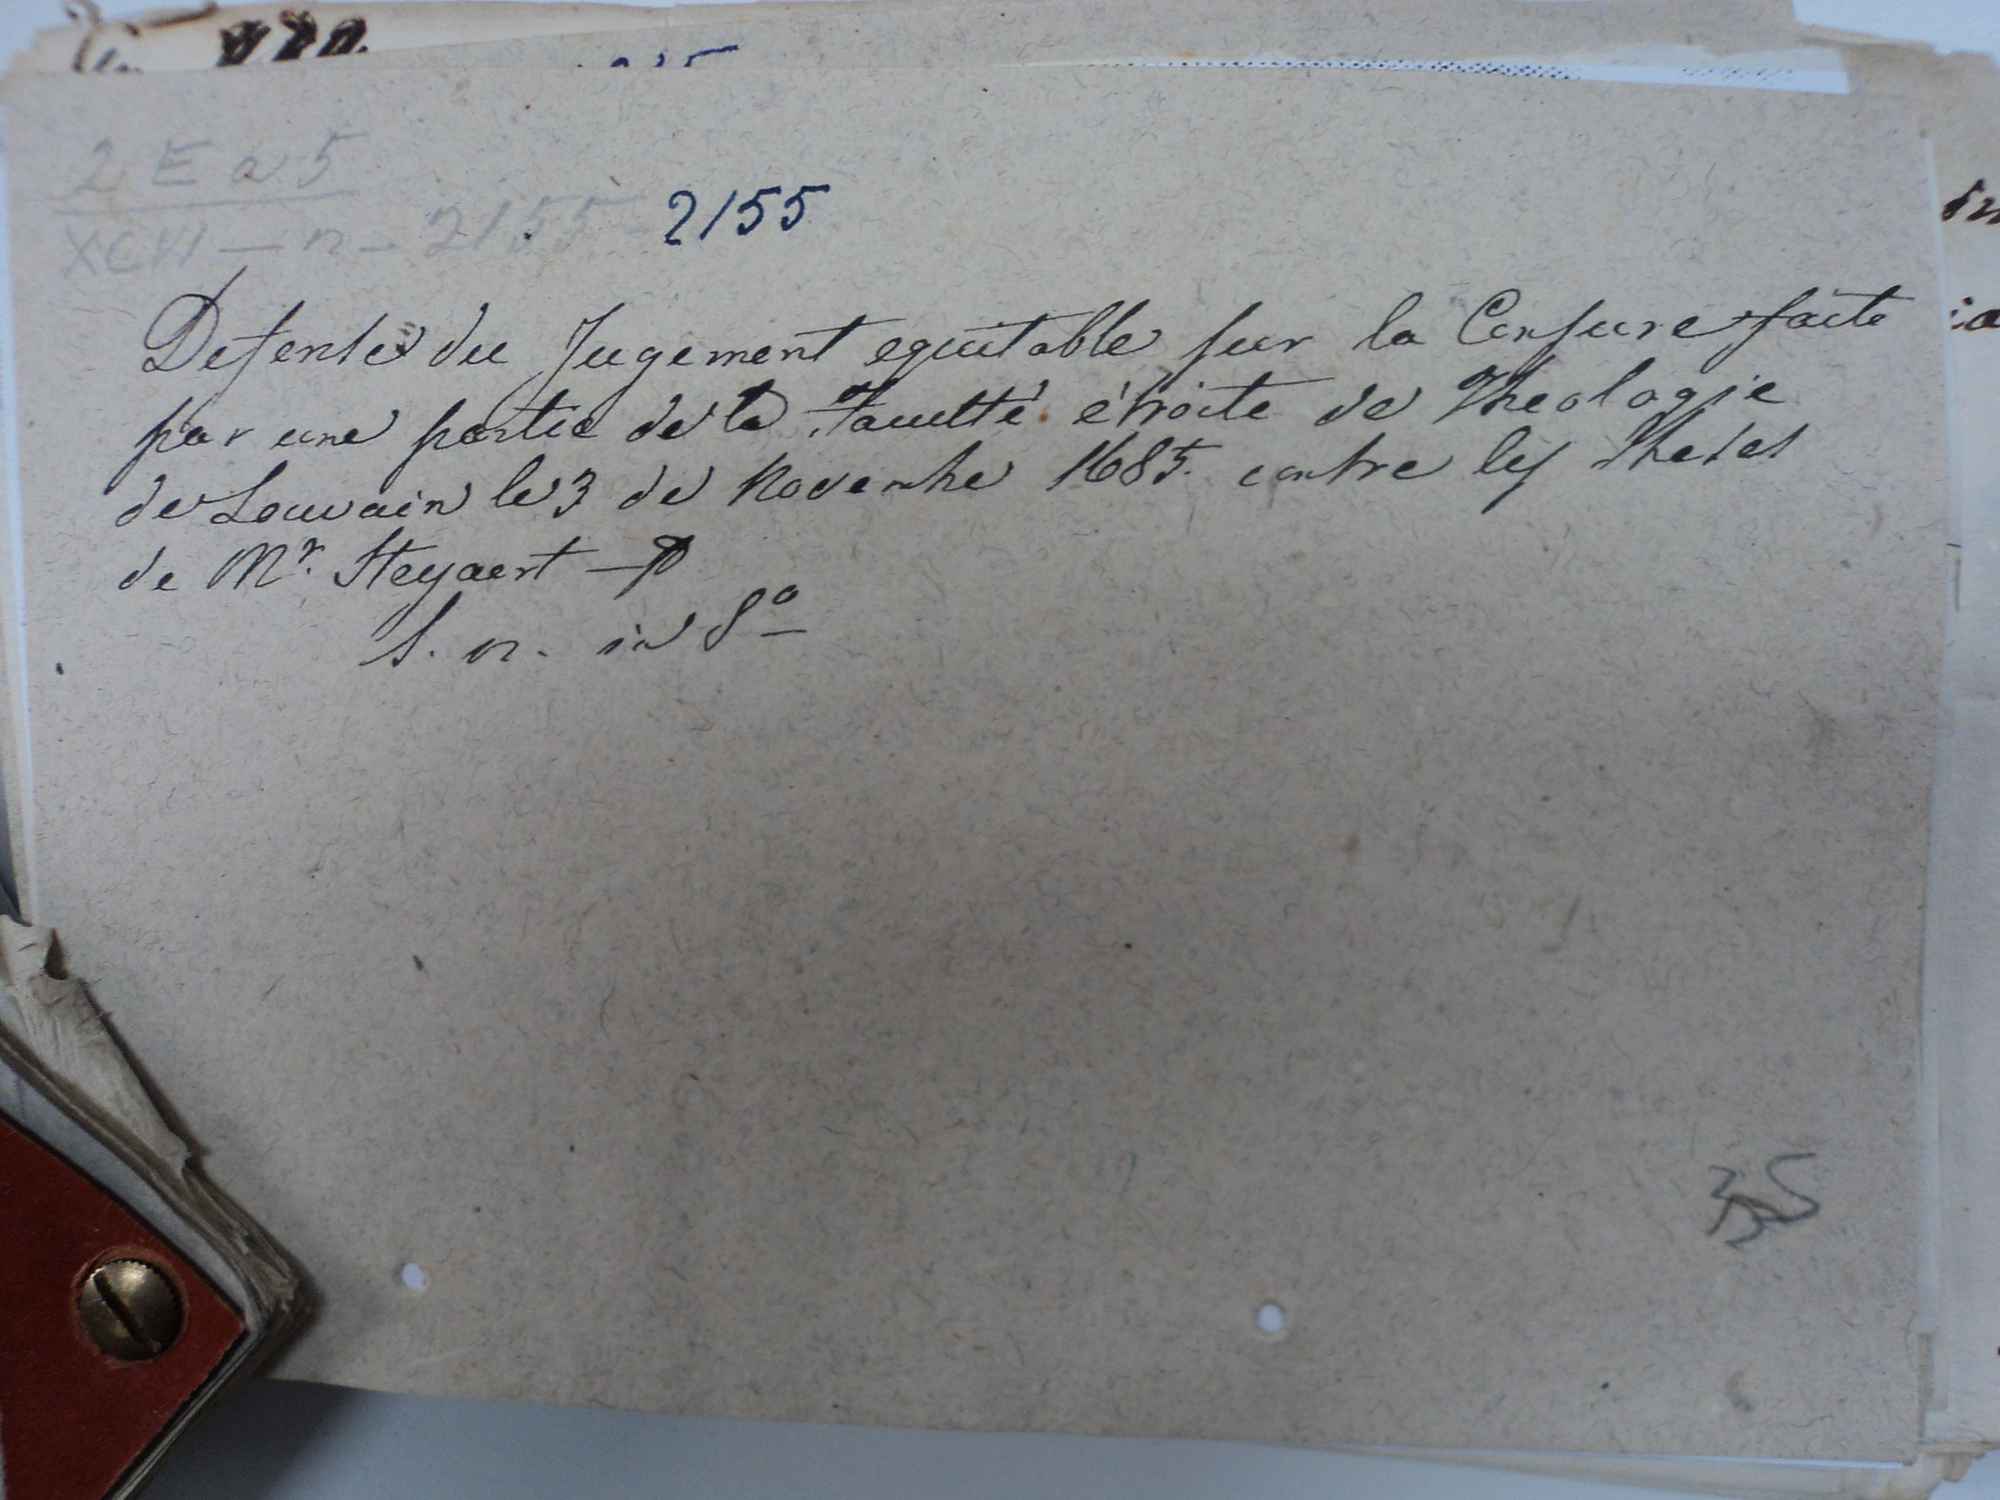 2 E a 5
XCVI - n - 2155 2155
Defense du Jugement equitable sur la Censure faite
par une partie de la Faculté étroite de Theologie
de Louvain le 3 de Novembre 1685. contre les Theses
de Mr. Steyaert
S. n. in 8o